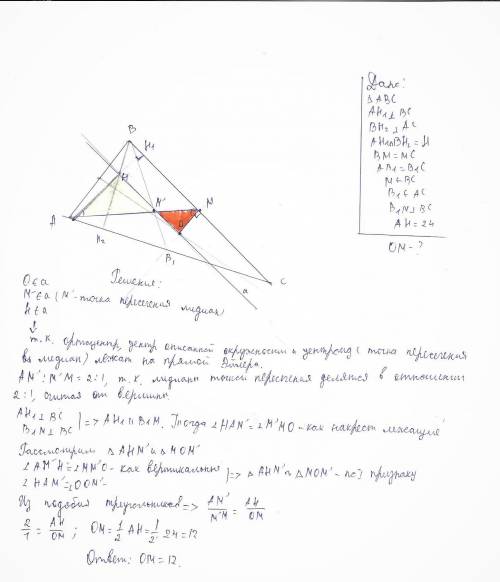 Дано:
△ABC
AH₁⊥BC
BH₂⊥AC
AH₁∩BH₂=H
BM=MC
AB₁=B₁C
M∈BC
B₁∈AC
B₁N⊥BC
AH=24
OM-?
B
H₁
H
M'
M
A
O
H₂
B₁
C
a
O∈a Решение:
M'∈a (M'-точка пересечения медиан)
H∈a
т.к. ортоцентр, центр описанной окружности и центроид (точка пересечения
медиан) лежат на прямой Эйлера.
AM':M'M=2:1, т.к. медианы точкой пересечения делятся в отношении
2:1, считая от вершины.
AH₁⊥BC
B₁N⊥BC ] => AH₁ || B₁M. Тогда ∠HAM'=∠M'MO - как накрест лежащие
Рассмотрим △AHM' и △MOM'
∠AM'H=∠MM'O - как вертикальные
∠HAM'=∠OMM' ] => △AHM' ~ △MOM' - по I признаку
Из подобия треугольников => AM'/M'M = AH/OM
2/1 = AH/OM ; OM = 1/2 AH = 1/2 · 24 = 12
Ответ: OM=12.